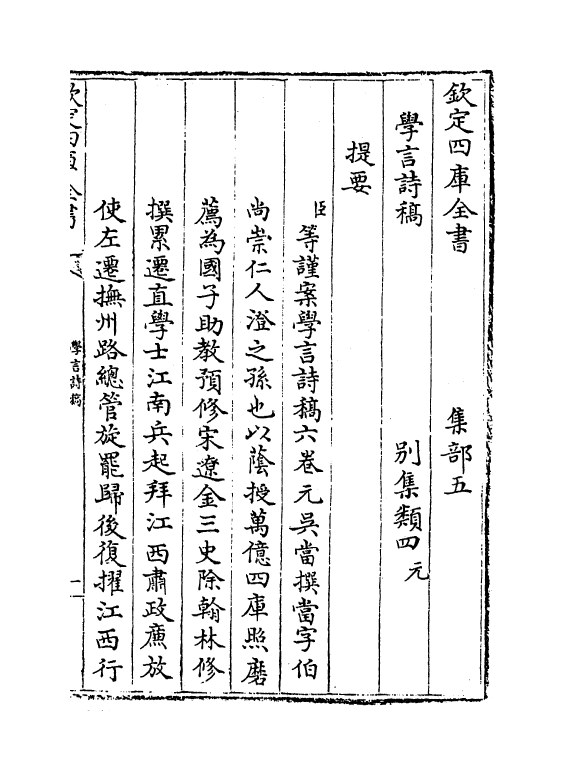 欽定四庫全書　集部五
學言詩稿　別集類四元
提要
臣等謹案學言詩稿六卷元吳當撰當字伯
尚崇仁人澄之孫也以蔭授萬億四庫照磨
薦為國子助教預修宋遼金三史除翰林修
撰累遷直學士江南兵起拜江西肅政廉放
使左遷撫州路總管旋罷歸後復擢江西行
欽定四庫全書
學言詩稿
一